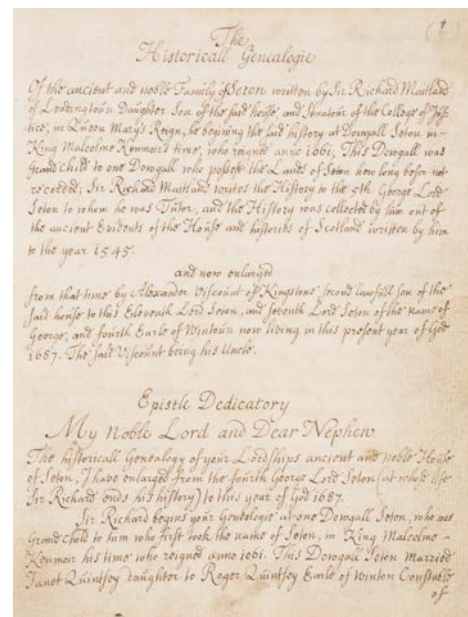 (1
The
Historicall Genealogie
Of the ancient and noble Family of Seton written by Sir Richard Maitland
of Ledingtoun Daughter Son of the said house, and Senatour of the Colledge of Jus-
tice, in Queen Mary's Reign, he begining the said history at Dowgall Seton in
King Malcolme Kenmoir's time, who reigned anno 1061, This Dowgall was
Grand Child to one Dowgall who possest the Lands of Seton how long befor not
recorded; Sir Richard Maitland writes the History to the 5th George Lord
Seton to whom he was Tutor, and the History was collected by him out of
the ancient Evidents of the House and histories of Scotland written by him
to the year 1545.
and now enlarged
from that time by Alexander Viscount of Kingstone second lawfull son of the
said house to this Eleventh Lord Seton, and seventh Lord Seton of the name of
George, and fourth Earle of Wintoun now living in this present year of God
1687. The said Viscount being his Uncle.
Epistle Dedicatory
My Noble Lord and Dear Nephew
The historicall Genealogy of your Lordships ancient and noble House
of Seton, I have enlarged from the fourth George Lord Seton (at whose life
Sir Richard ends his history) to this year of God 1687.
Sir Richard begins your Genealogie at one Dowgall Seton, who was
Grand Child to him who first took the name of Seton, in King Malcolme
Kenmoir his time who reigned anno 1061. This Dowgall Seton Married
Janet Quintsoy daughter to Roger Quintsoy Earle of Winton Constable
of